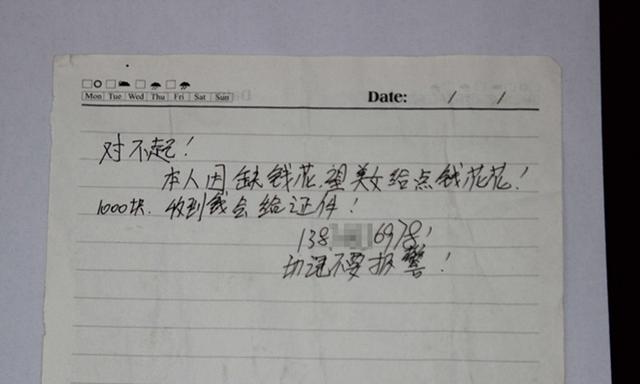 Mon Tue Wed Thu Fri Sat Sun
Date: / /
对不起！
本人因缺钱花,望美女给点钱花花！
1000块.收到钱会给证件！
138 6978！
切记不要报警！